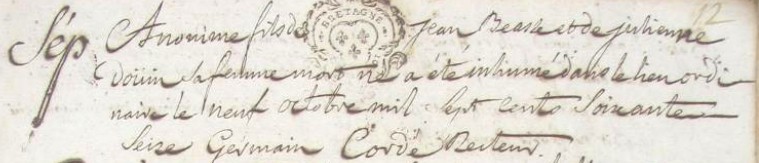 12
Sép Anonime fils de Jean Beasse et de julienne
BRETAGNE
doüin sa femme mort né a été inhumé dans le lieu ordi
naire le neuf octobre mil sept cents Soixante
Seize Germain Cordé Recteur.